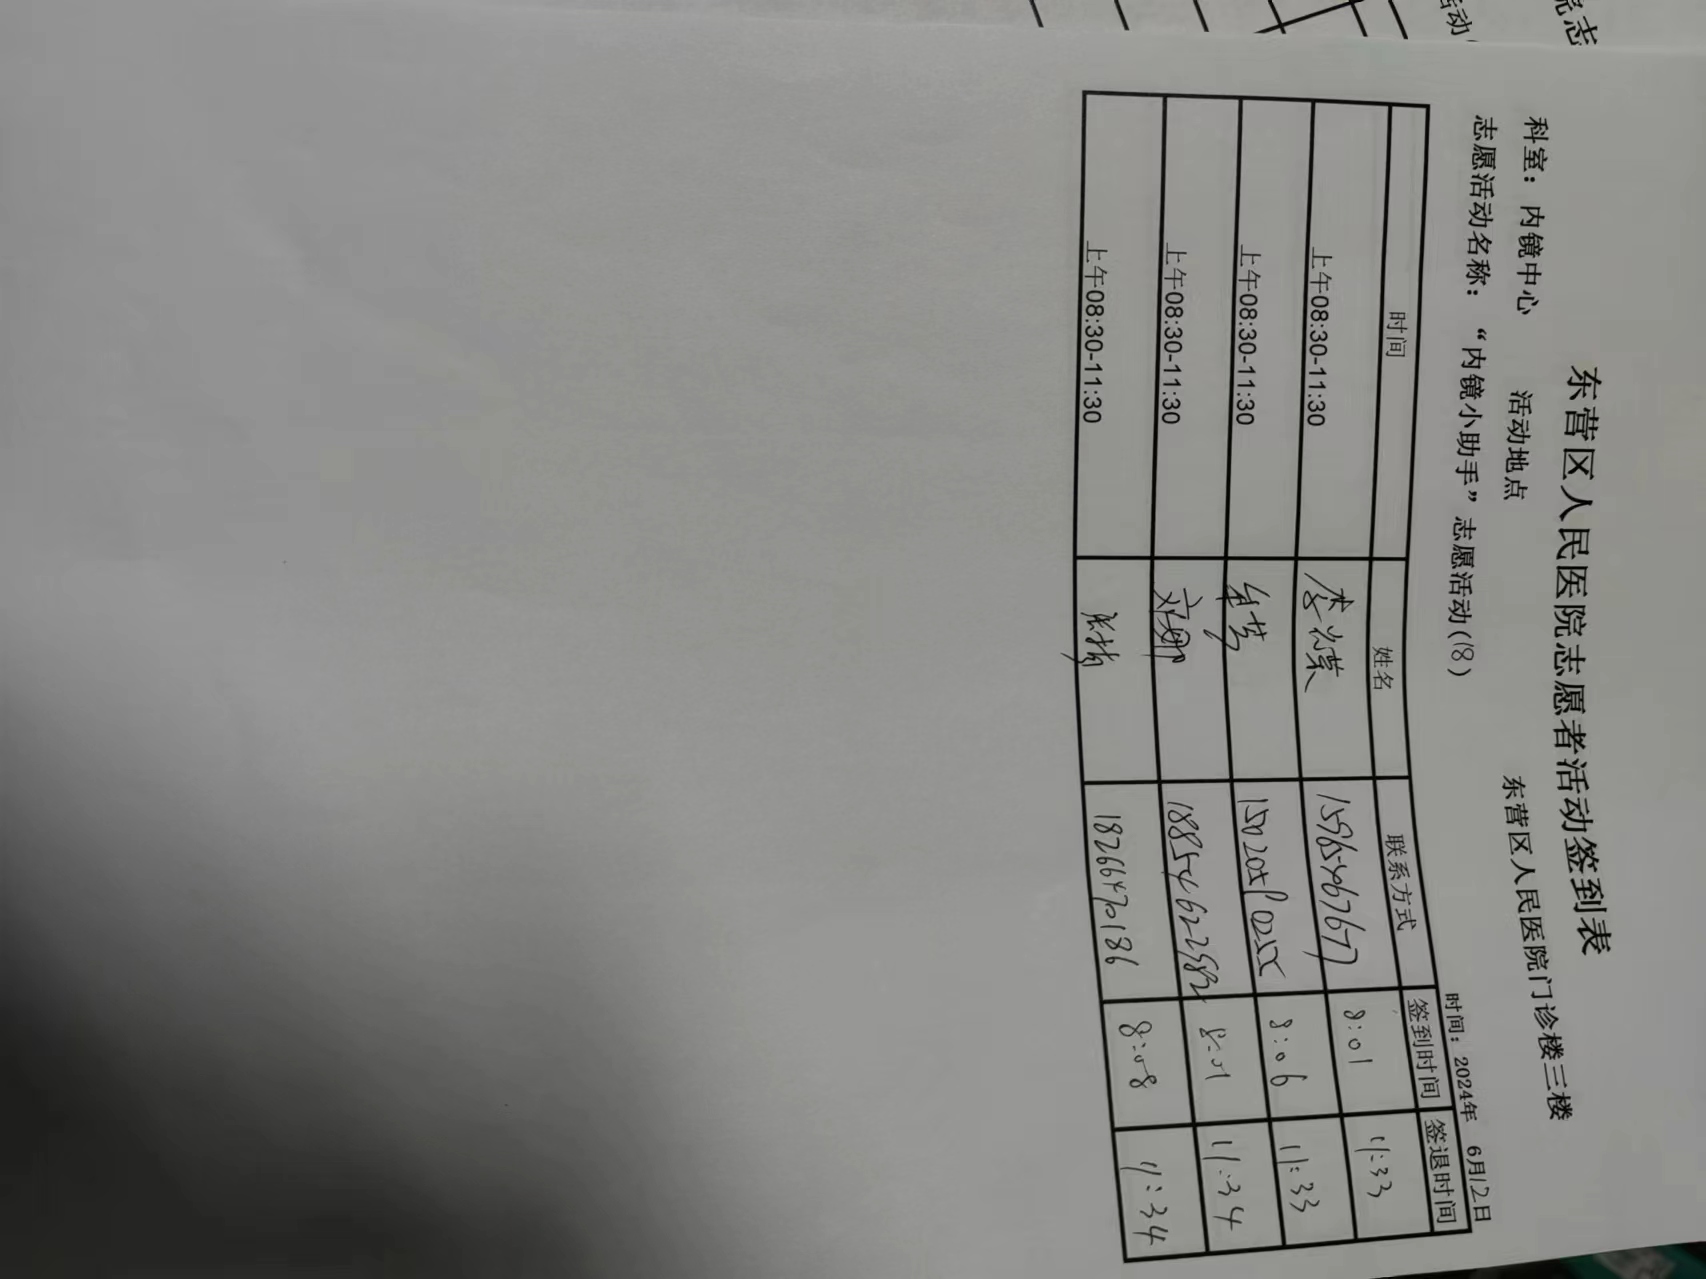 东营区人民医院志愿者活动签到表
科室：内镜中心 活动地点 东营区人民医院门诊楼三楼
志愿活动名称：“内镜小助手”志愿活动(18)
时间：2024年 6月12日
时间 姓名 联系方式 签到时间 签退时间
上午08:30-11:30 15965467677 8:01 11:33
上午08:30-11:30 8:06 11:33
上午08:30-11:30 18854622582 8:01 11:34
上午08:30-11:30 18266470186 8:08 11:34
院志
活动(